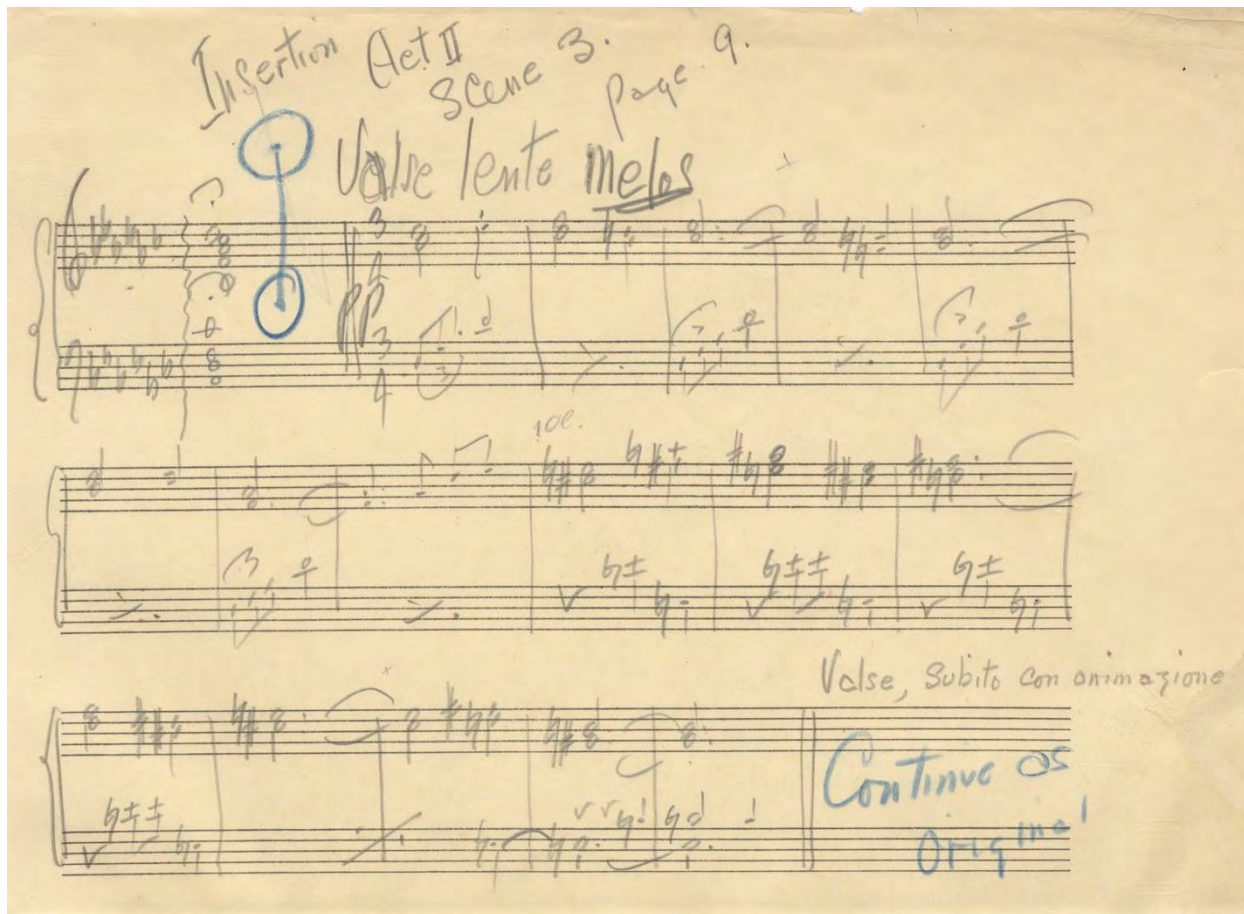 Insertion Act II
Scene 3.
page 9.
Valse lente melos
3
4
pp
3
4
3
3
3
3
Valse, Subito con animazione
Continue as
Original